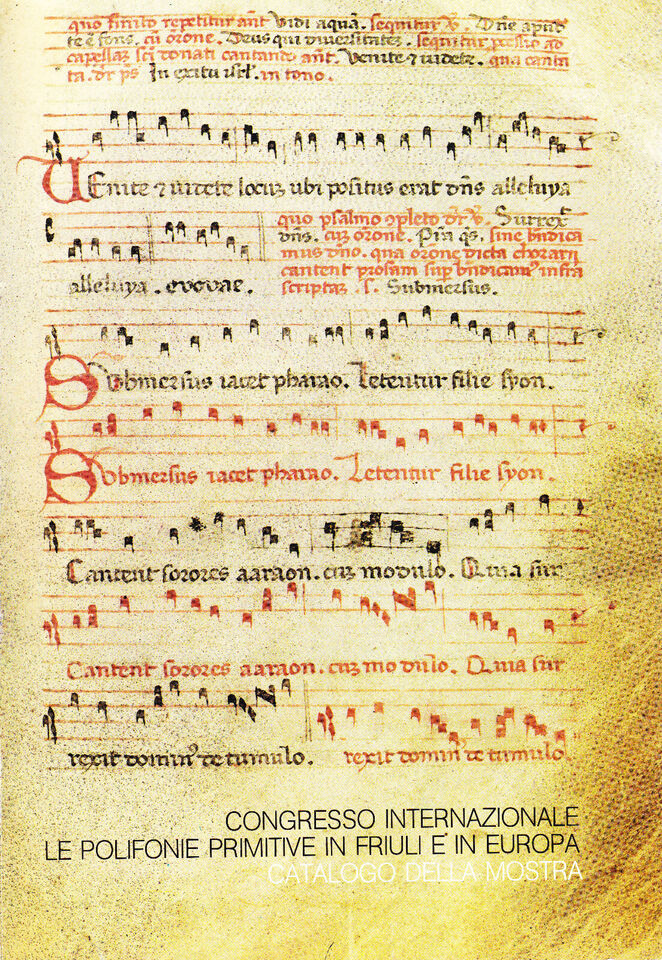 quo finito repetitur ant̄ Vidi aquā. sequitur ℣. Dn̄e apud
te ē fons. cū orōne. Deus qui diversitatez. sequitur pcessio ad
capellaȝ sc̄i Donati cantando ant̄. Venite ⁊ videte. qua canta
ta. dr̄ ps In exitu isrl̄. in tono.
VEnite ⁊ videte locuȝ ubi positus erat dn̄s alleluya
quo psalmo ꝯpleto dr̄ ℣. Surrex̄
dn̄s. cuȝ orone. Pīa qs̄. sine bn̄dica
mus dn̄o. qua orōne dicta chorarij
cantent prosam sup bn̄dicam᷒ infra
alleluya. evovae. scriptaȝ. s. Submersus.
SUbmersus iacet pharao. Letentur filie syon.
SUbmersus iacet pharao. Letentur filie syon.
Cantent sorores aaraon. cuȝ modulo. Quia sur
Cantent sorores aaraon. cuȝ modulo. Quia sur
rexit domin᷒ de tumulo. rexit domin᷒ de tumulo.
CONGRESSO INTERNAZIONALE
LE POLIFONIE PRIMITIVE IN FRIULI E IN EUROPA
CATALOGO DELLA MOSTRA